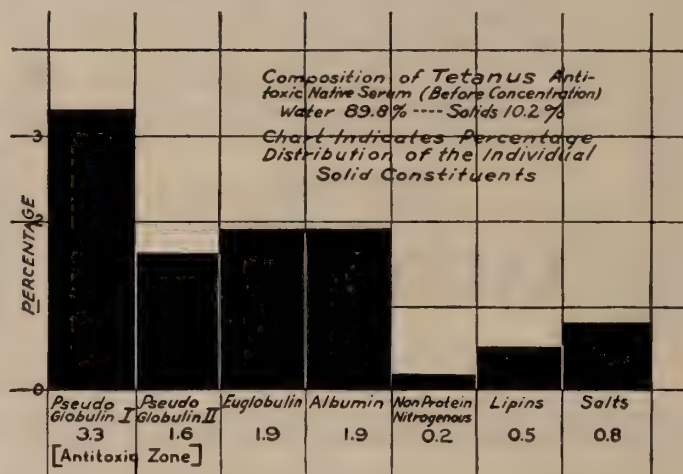 Composition of Tetanus Anti-
toxic Native Serum (Before Concentration)
Water 89.8% ---- Solids 10.2%
Chart Indicates Percentage
Distribution of the Individual
Solid Constituents
PERCENTAGE
3
2
1
0
Pseudo Globulin I
3.3
Pseudo Globulin II
1.6
Euglobulin
1.9
Albumin
1.9
Non Protein
Nitrogenous
0.2
Lipins
0.5
Salts
0.8
[Antitoxic Zone]